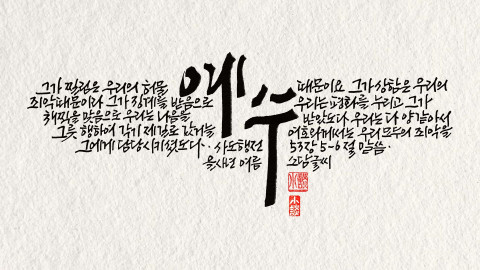 예수
그가 찔림은 우리의 허물 때문이요 그가 상함은 우리의
죄악 때문이라 그가 징계를 받음으로 우리는 평화를 누리고 그가
채찍을 맞음으로 우리는 나음을 받았도다 우리는 다 양 같아서
그릇 행하여 각기 제 길로 갔거늘 여호와께서는 우리 모두의 죄악을
그에게 담당시키셨도다 · 사도행전 53장 5-6절 말씀 ·
을사년 여름 소남글씨